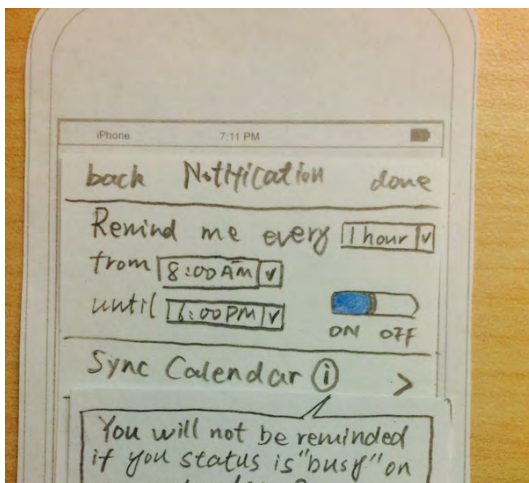 iPhone 7:11 PM
back Notification done
Remind me every 1 hour
from 8:00 AM
until 6:00 PM
ON OFF
Sync Calendar i >
You will not be reminded
if you status is "busy" on